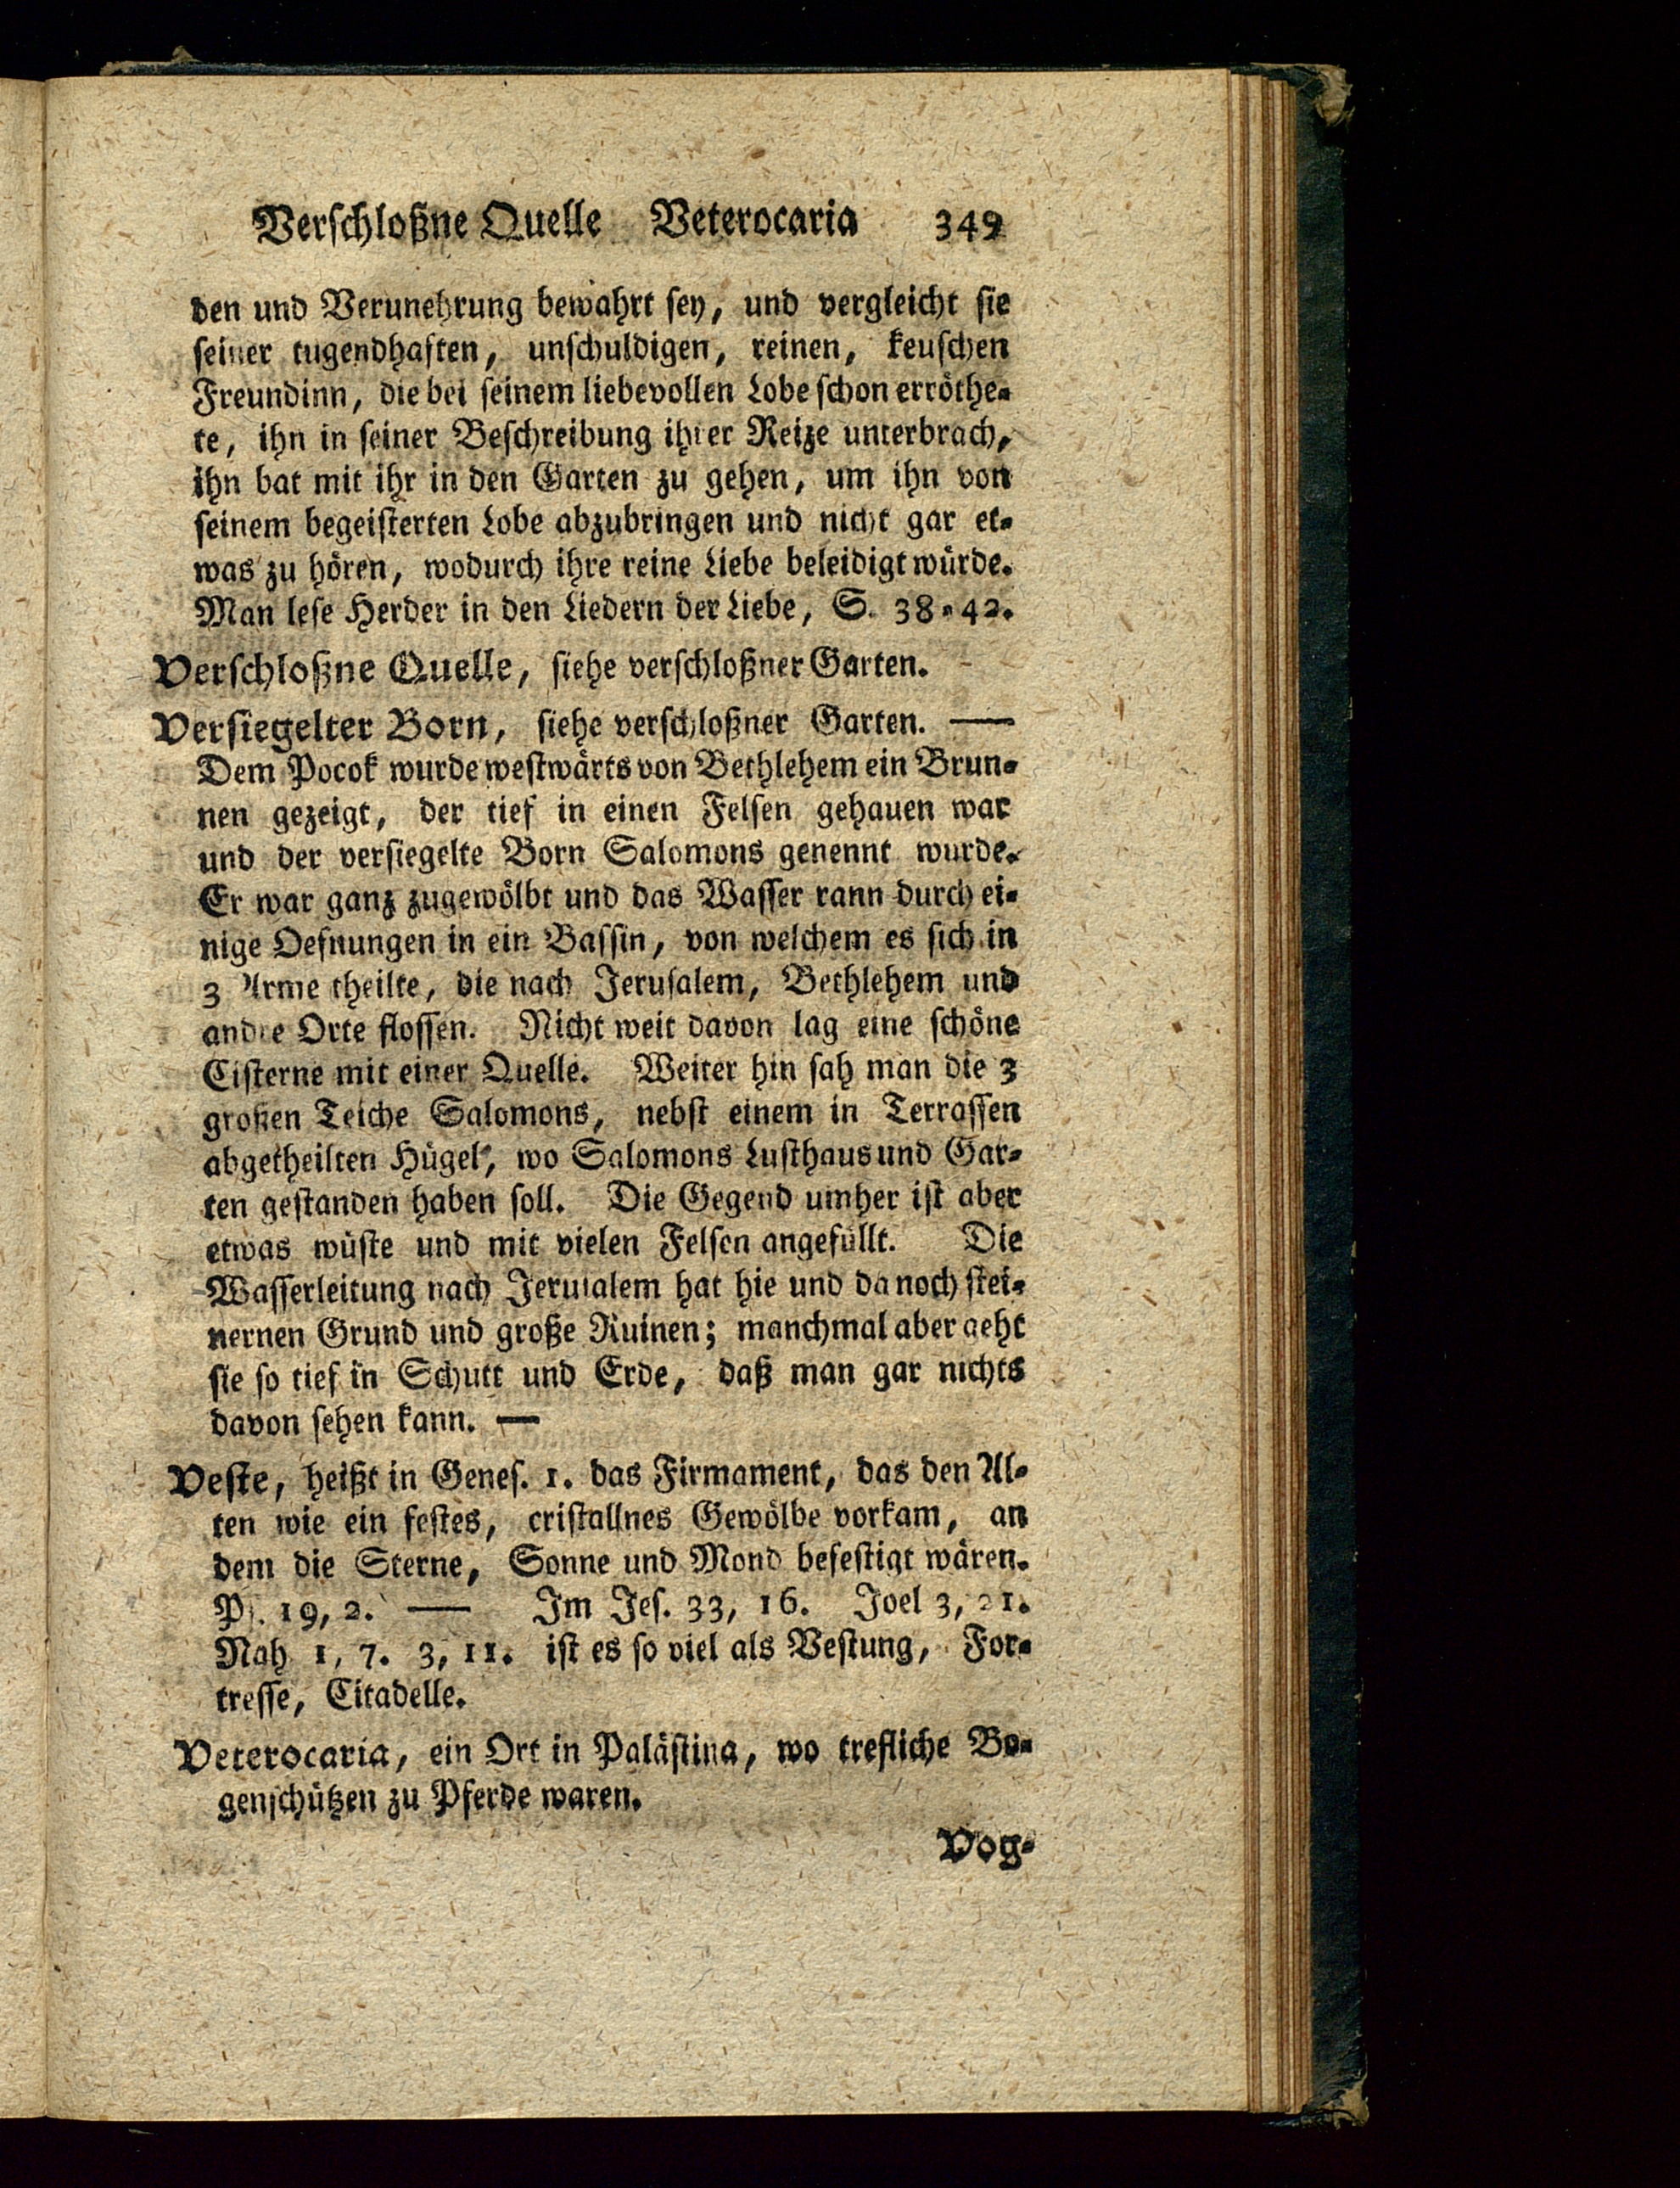 Verschloßne Quelle Veterocaria 349
den und Verunehrung bewahrt sey, und vergleicht sie
seiner tugendhaften, unschuldigen, reinen, keuschen
Freundinn, die bei seinem liebevollen Lobe schon erröthe-
te, ihn in seiner Beschreibung ihrer Reize unterbrach,
ihn bat mit ihr in den Garten zu gehen, um ihn von
seinem begeisterten Lobe abzubringen und nicht gar et-
was zu hören, wodurch ihre reine Liebe beleidigt würde.
Man lese Herder in den Liedern der Liebe, S. 38-42.
Verschloßne Quelle, siehe verschloßner Garten.
Versiegelter Born, siehe verschloßner Garten. —
Dem Pocok wurde westwärts von Bethlehem ein Brun-
nen gezeigt, der tief in einen Felsen gehauen war
und der versiegelte Born Salomons genennt wurde.
Er war ganz zugewölbt und das Wasser rann durch ei-
nige Oefnungen in ein Bassin, von welchem es sich in
3 Arme theilte, die nach Jerusalem, Bethlehem und
andre Orte flossen. Nicht weit davon lag eine schöne
Cisterne mit einer Quelle. Weiter hin sah man die 3
großen Teiche Salomons, nebst einem in Terrassen
abgetheilten Hügel, wo Salomons Lusthaus und Gar-
ten gestanden haben soll. Die Gegend umher ist aber
etwas wüste und mit vielen Felsen angefüllt. Die
Wasserleitung nach Jerusalem hat hie und da noch stei-
nernen Grund und große Ruinen; manchmal aber geht
sie so tief in Schutt und Erde, daß man gar nichts
davon sehen kann. —
Veste, heißt in Genes. 1. das Firmament, das den Al-
ten wie ein festes, cristallnes Gewölbe vorkam, an
dem die Sterne, Sonne und Mond befestigt wären.
Ps. 19, 2. — Im Jes. 33, 16. Joel 3, 21.
Nah 1, 7. 3, 11. ist es so viel als Vestung, For-
tresse, Citadelle.
Veterocaria, ein Ort in Palästina, wo trefliche Bo-
genschützen zu Pferde waren.
Vog-